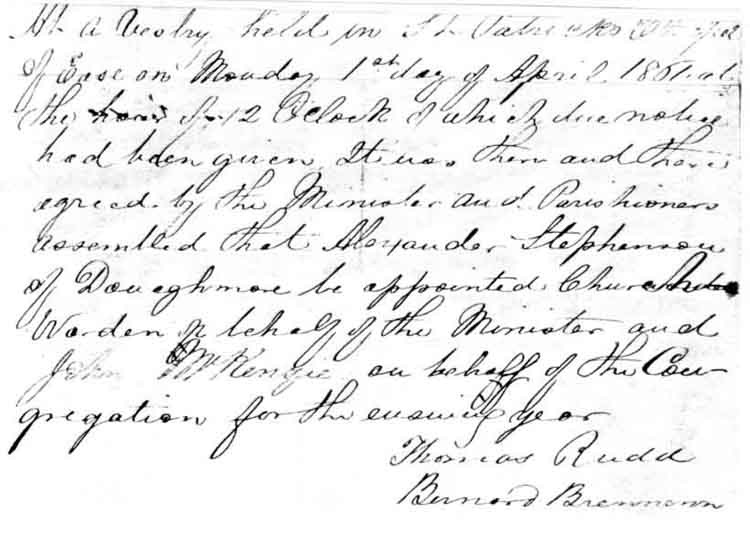 At a Vestry held in St. Patricks Chapel
of Ease on Monday 1st day of April 1861 at
the hour of 12 O Clock of which due notice
had been given. It was then and there
agreed by the Minister and Parishioners
assembled that Alexander Stephenson
of Donaghmore be appointed Church
Warden on behalf of the Minister and
John McKenzie on behalf of the Con-
gregation for the ensuing year
Thomas Rudd
Bernard Brennan